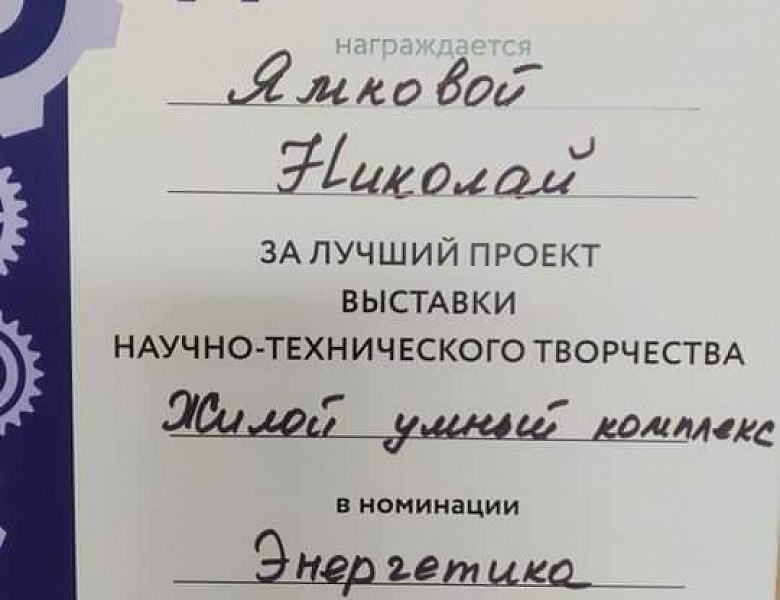 награждается
Ямковой
Николай
ЗА ЛУЧШИЙ ПРОЕКТ
ВЫСТАВКИ
НАУЧНО-ТЕХНИЧЕСКОГО ТВОРЧЕСТВА
Жилой умный комплекс
в номинации
Энергетика